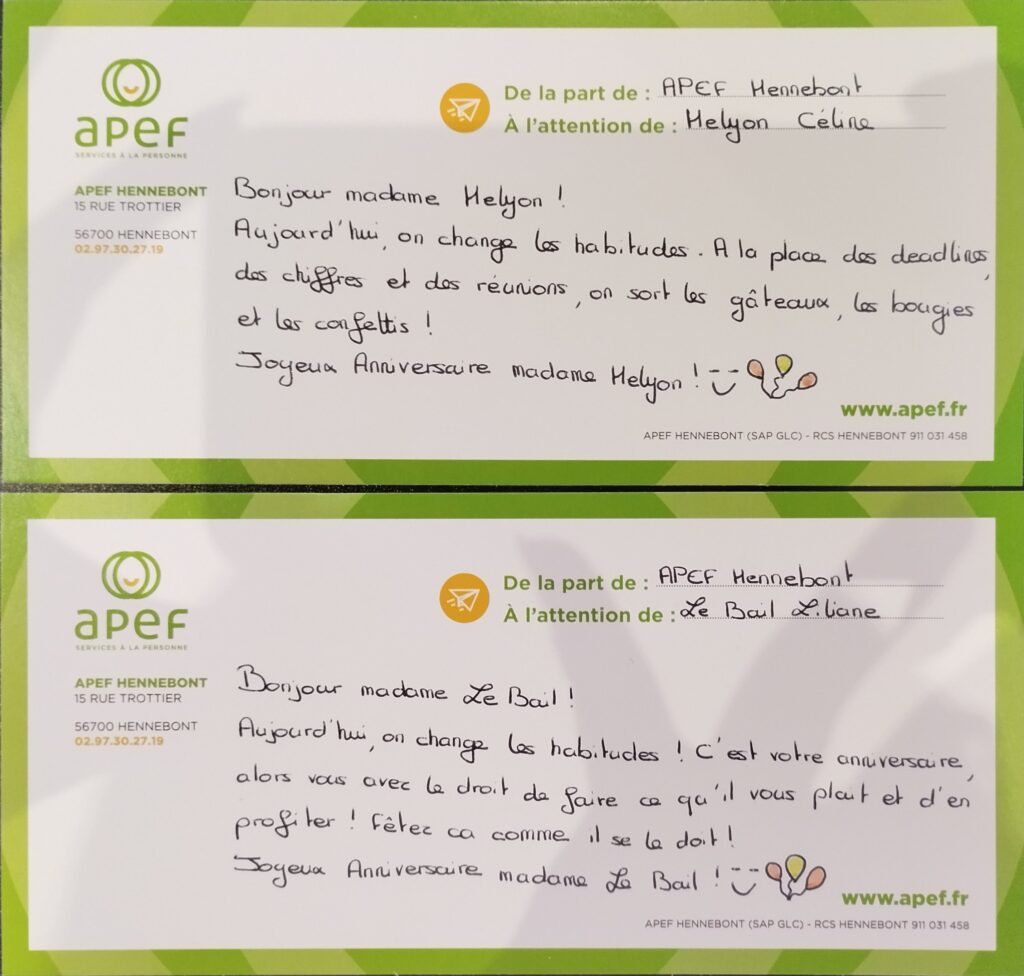 apef
SERVICES À LA PERSONNE
De la part de : APEF Hennebont
À l'attention de : Helyon Céline
APEF HENNEBONT
15 RUE TROTTIER
56700 HENNEBONT
02.97.30.27.19
Bonjour madame Helyon !
Aujourd'hui, on change les habitudes. A la place des deadlines,
des chiffres et des réunions, on sort les gâteaux, les bougies
et les confettis !
Joyeux Anniversaire madame Helyon !
www.apef.fr
APEF HENNEBONT (SAP GLC) - RCS HENNEBONT 911 031 458
apef
SERVICES À LA PERSONNE
De la part de : APEF Hennebont
À l'attention de : Le Bail Liliane
APEF HENNEBONT
15 RUE TROTTIER
56700 HENNEBONT
02.97.30.27.19
Bonjour madame Le Bail !
Aujourd'hui, on change les habitudes ! C'est votre anniversaire,
alors vous avec le droit de faire ce qu'il vous plait et d'en
profiter ! Fêtez ca comme il se le doit !
Joyeux Anniversaire madame Le Bail !
www.apef.fr
APEF HENNEBONT (SAP GLC) - RCS HENNEBONT 911 031 458